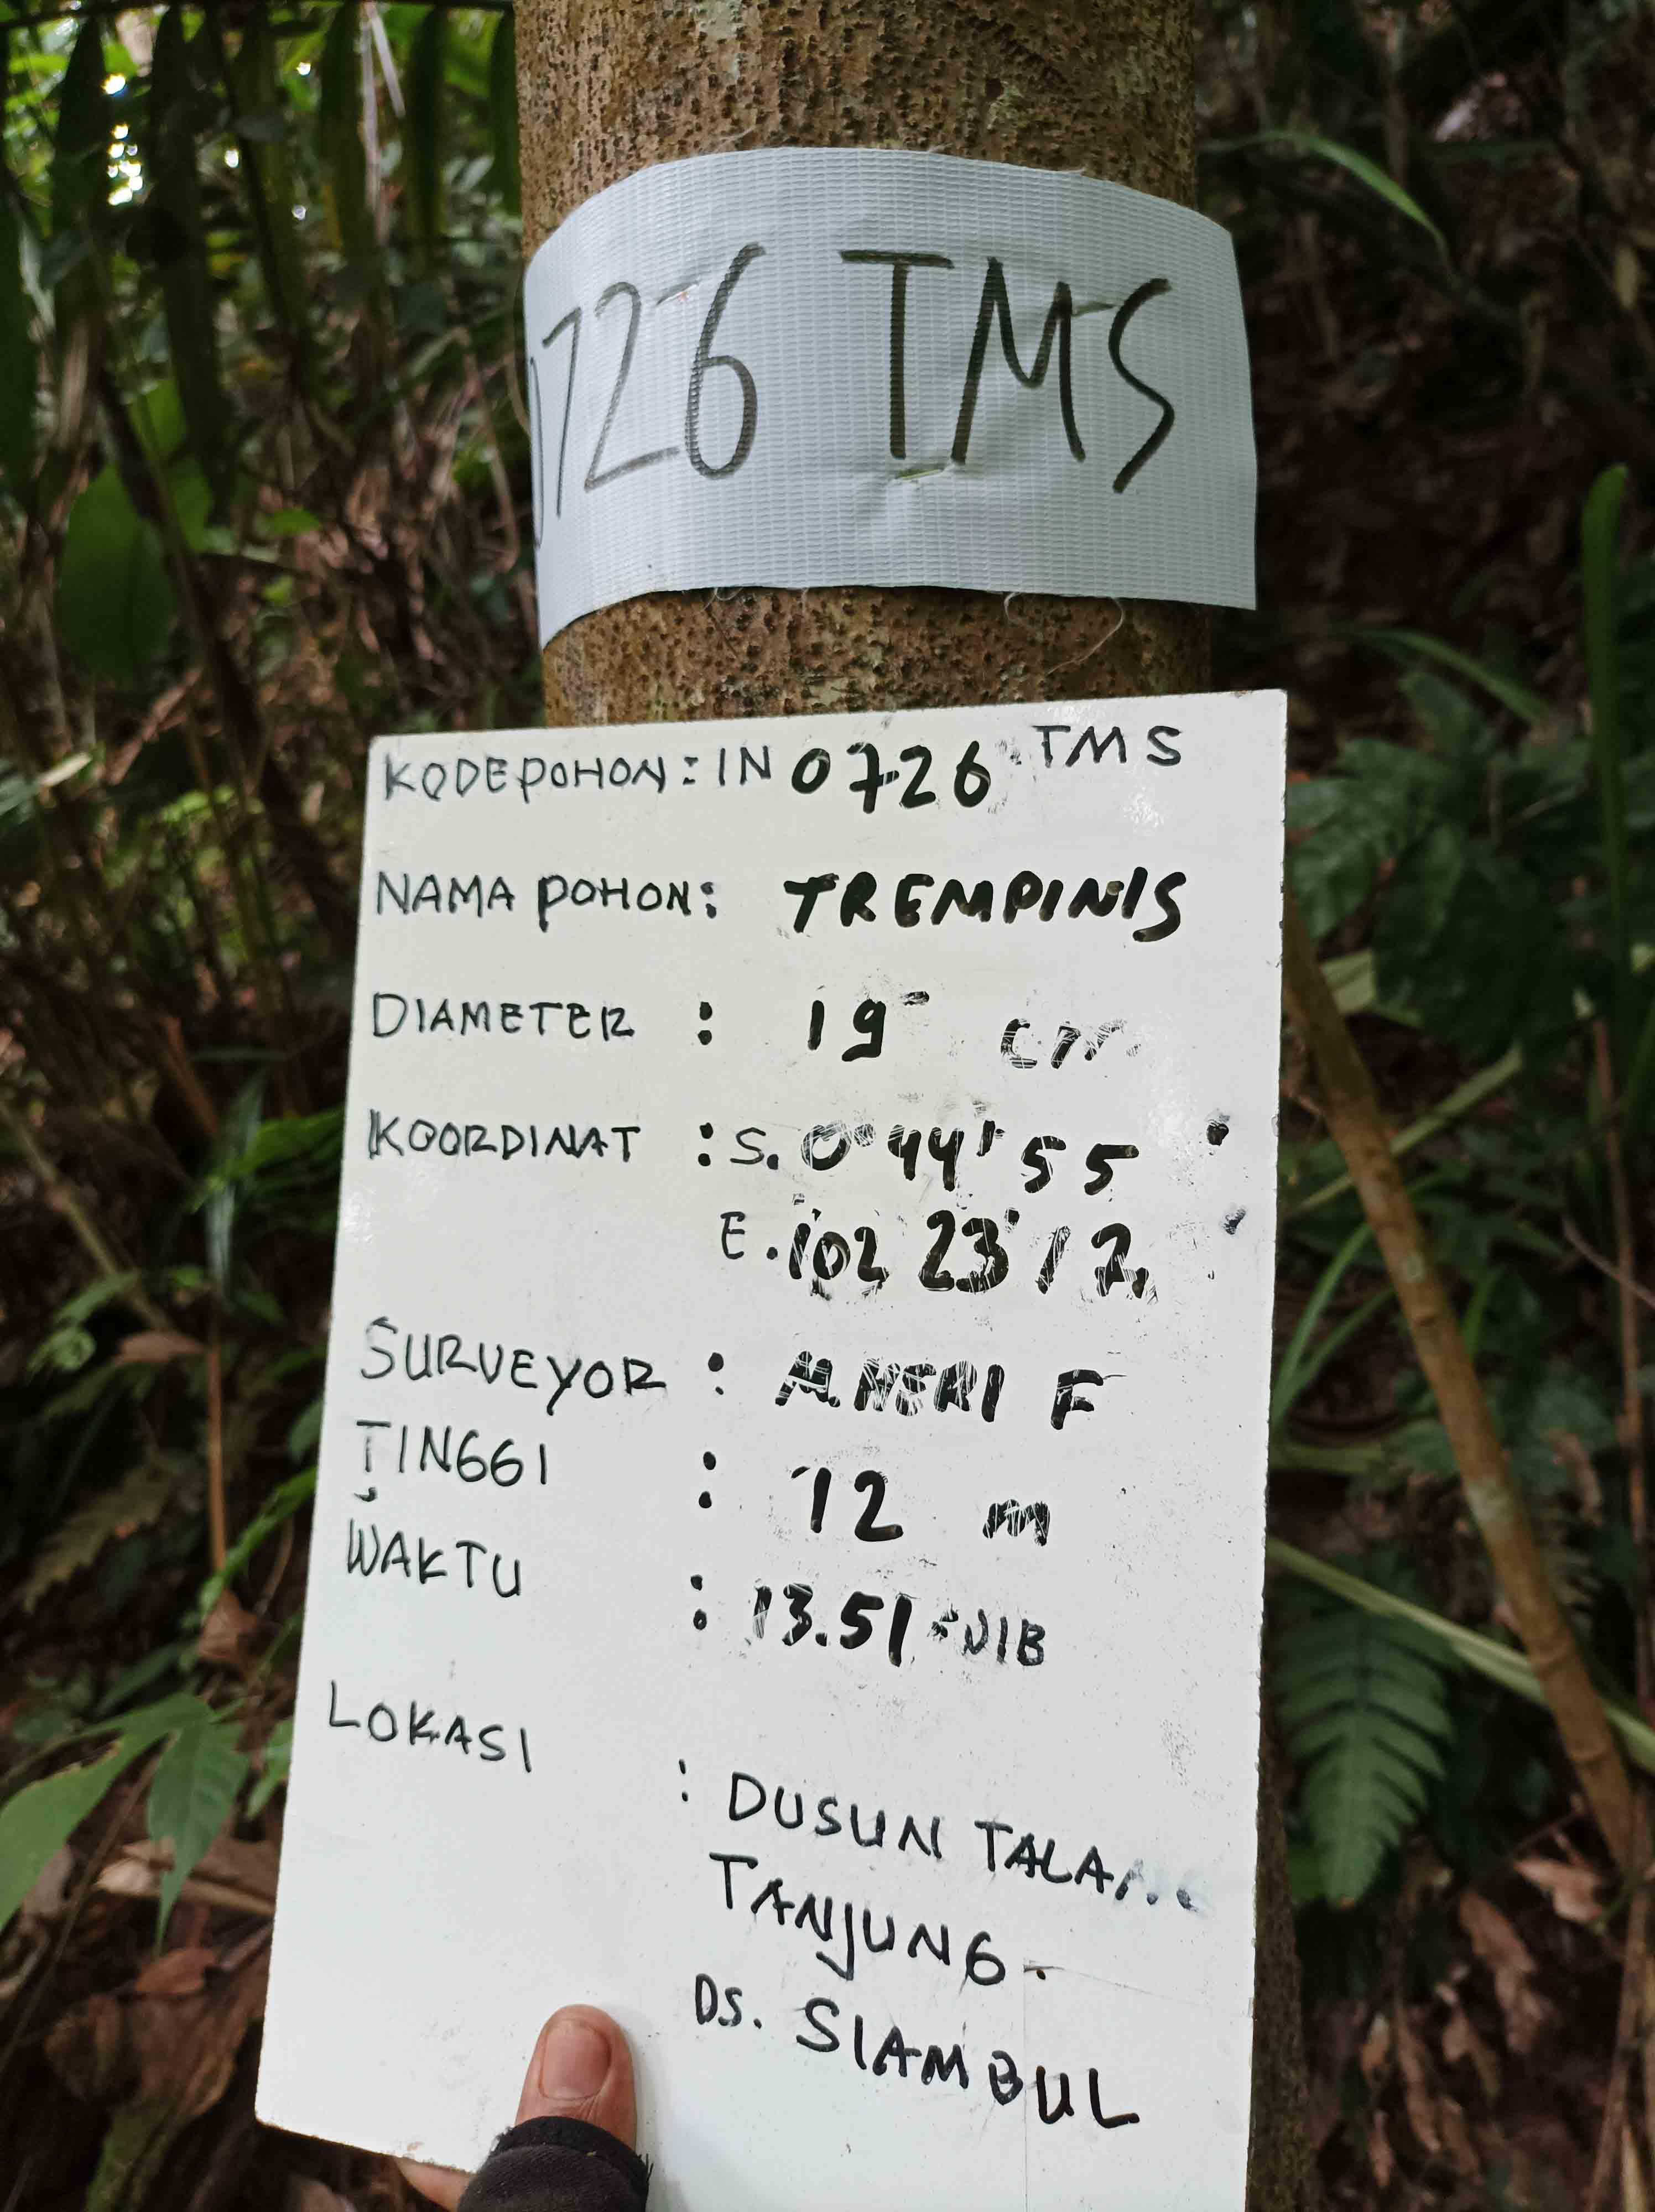 0726 TMS
KODE POHON : IN 0726 TMS
NAMA POHON : TREMPINIS
DIAMETER : 19 cm
KOORDINAT : S. 0° 44' 55
E. 102 23' 12
SURVEYOR : M. NERI F
TINGGI : 12 m
WAKTU : 13.51 WIB
LOKASI : DUSUN TALANG
TANJUNG.
DS. SIAMBUL